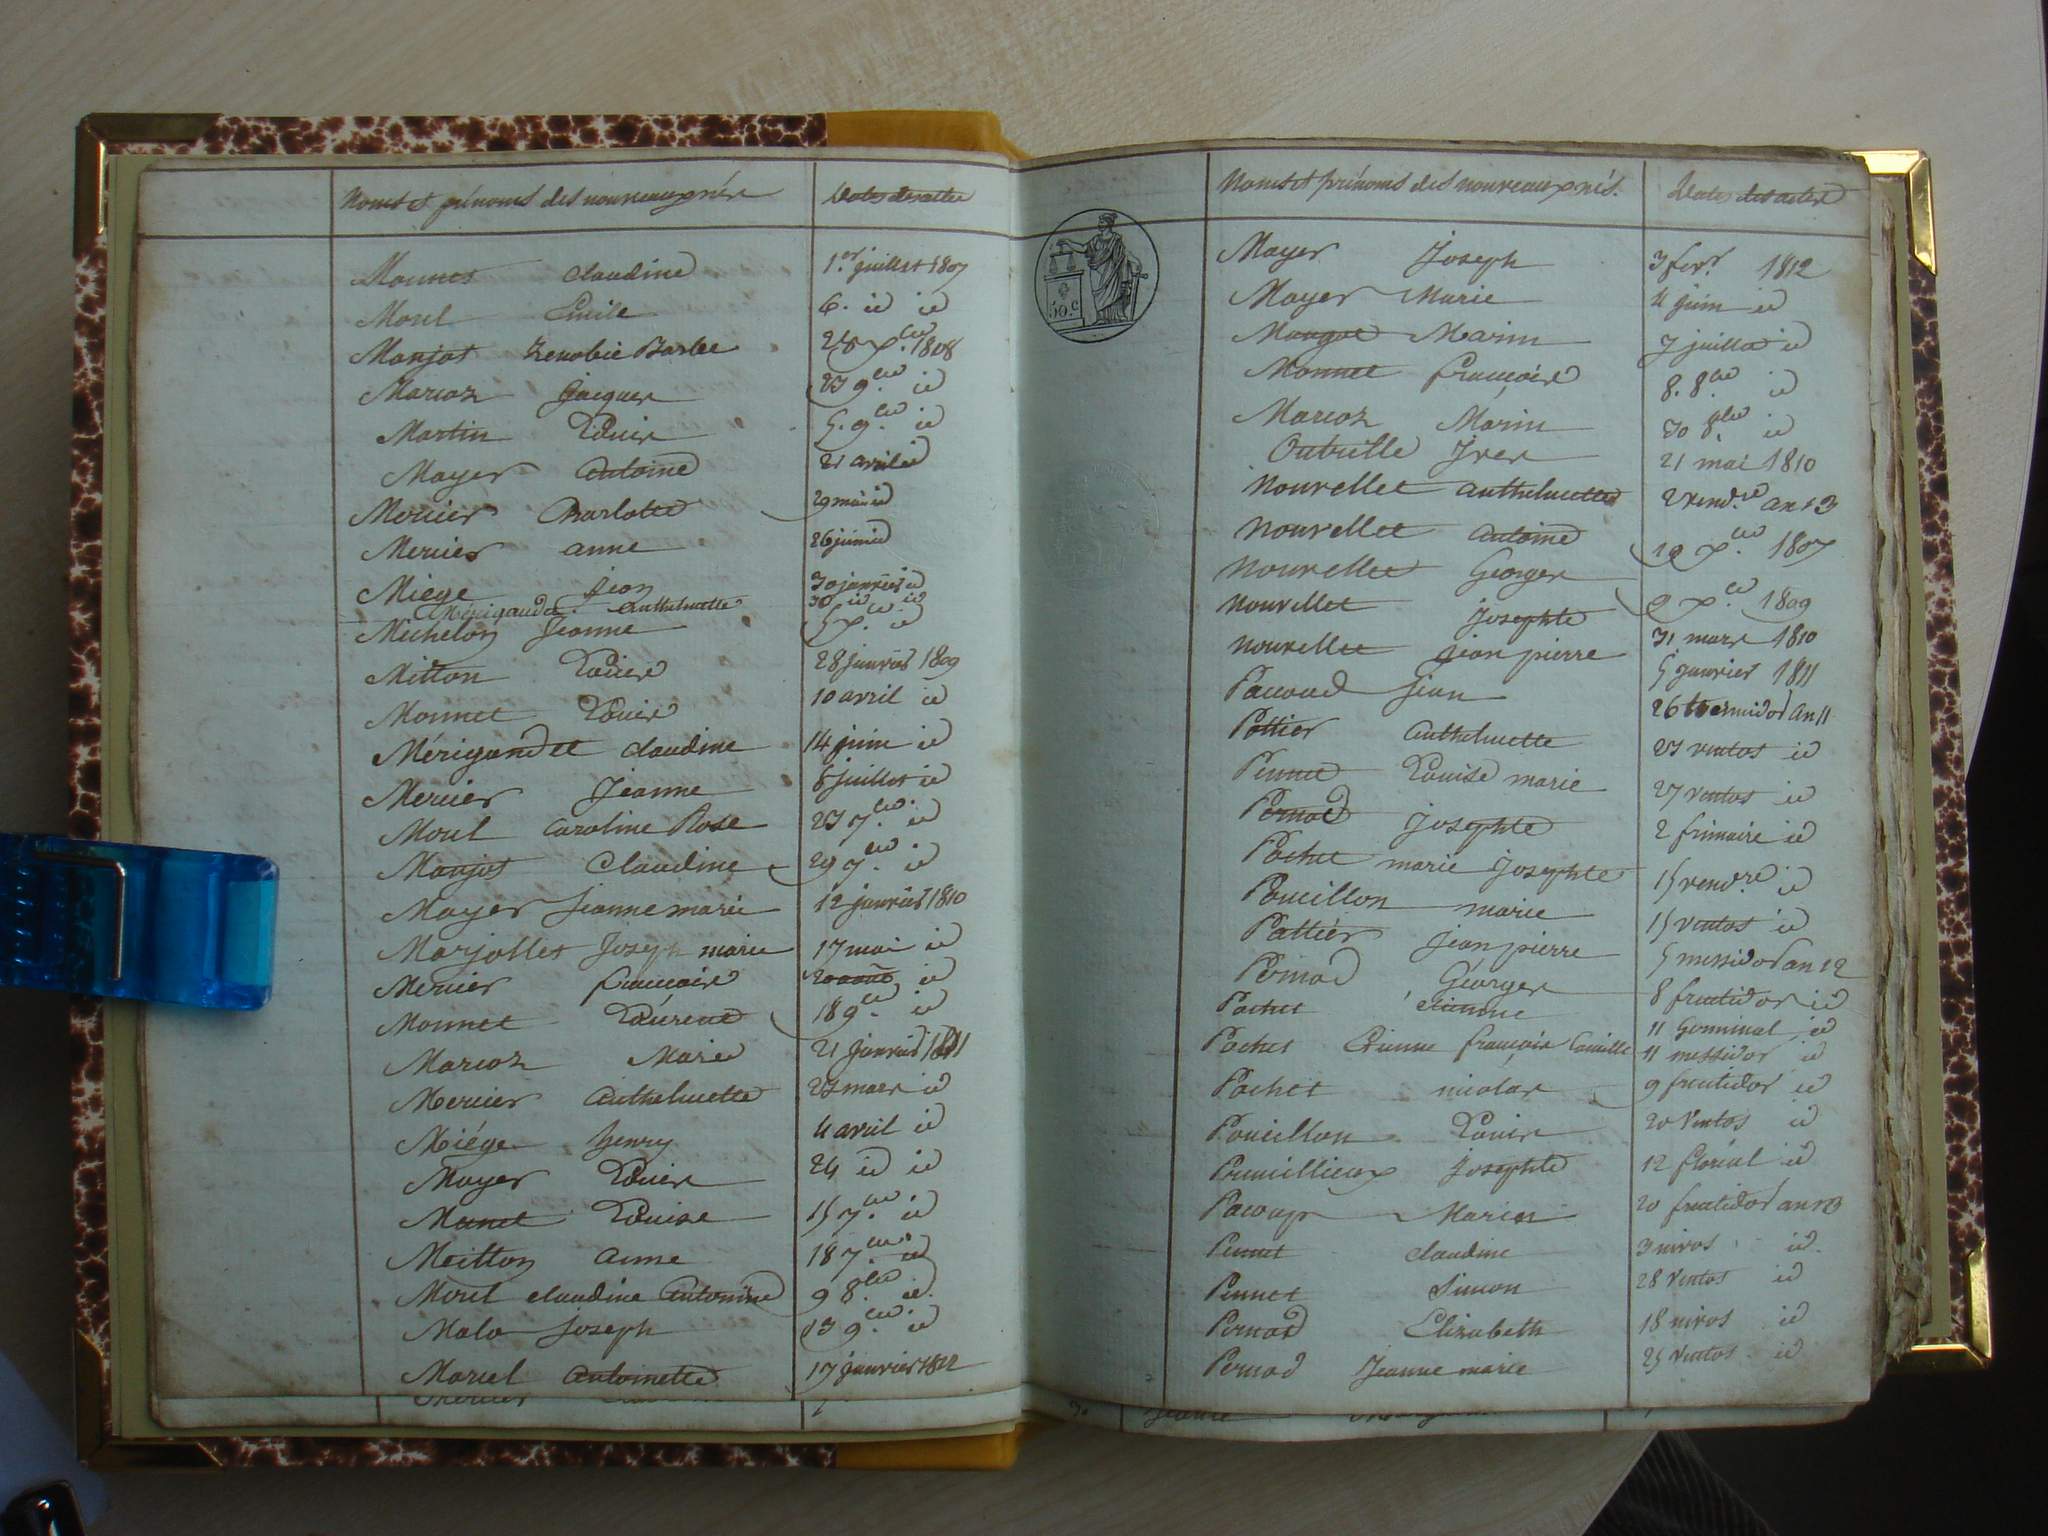 Noms et prénoms des nouveaux nés Dates des actes
Monnet Claudine 1.er juillet 1807
Morel Emile 6. id id
Manjot Zenobie Barbe 28 x.bre 1808
Marcoz Jacques 23 9.bre id
Martin Louis 5. 9.bre id
Mayer Antoine 21 avril id
Mercier Charlotte 29 mai id
Mercier anne 26 juin id
Miège Jean 30 janvier id
Mérigaudet Anthelmette 30 id id
Michelon Jeanne 5 x.bre id
Mitton Louis 28 janvier 1809
Monnet Louis 10 avril id
Mérigaudet Claudine 14 juin id
Mercier Jeanne 8 juillet id
Morel Caroline Rose 23 7.bre id
Manjot Claudine 29 7.bre id
Mayer Jeanne marie 12 janvier 1810
Marjollet Joseph marie 17 mai id
Mercier François 20 aout id
Monnet Laurent 18 9.bre id
Marcoz Marie 21 janvier 1811
Mercier Anthelmette 23 mars id
Miége henry 4 avril id
Mayer Louis 24 id id
Manet Louise 15 7.bre id
Meitton anne 18 7.bre id
Morel claudine Antoinine 9 8.bre id
Mala Joseph 13 9.bre id
Martel Antoinette 17 janvier 1812
Noms et prénoms des nouveaux nés. Dates des actes
50.c
Mayer Joseph 3 fevr. 1812
Mayer Marie 4 juin id
Marin 7 juillet id
Monnet François 8. 8.bre id
Marcoz Marin 30 8.bre id
Outrille Yves 21 mai 1810
Nouvellet anthelmette 2 vend.re an 13
Nouvellet antoine 12 x.bre 1807
Nouvellet Georges 2 x.bre 1809
Nouvellet Josephte 31 mars 1810
Nouvellet jean pierre 5 janvier 1811
Pacoud Jean 26 thermidor an 11
Pottier Anthelmette 23 ventos id
Pennet Louise marie 27 ventos id
Pernod Josephte 2 frimaire id
Pochet marie Josephte 15 vend.re id
Poucillon marie 15 ventos id
Pattier jean pierre 5 messidor an 12
Pernod Géorges 8 fructidor id
Pochet étienne 11 Germinal id
Pochet Etienne françois Camille 11 messidor id
Pochet nicolas 9 fructidor id
Poucillon Louis 20 Ventos id
Josephte 12 floréal id
Marin 20 fructidor an 13
Pennet claudine 3 nivos id
Pennet Simon 28 Ventos id
Pernod Elizabeth 18 nivos id
Pernod Jeanne marie 25 ventos id